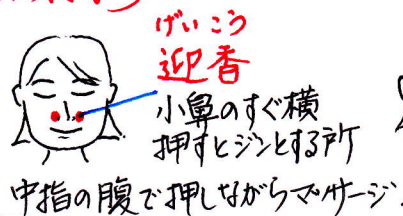 げいこう
迎香
小鼻のすぐ横
押すとジンとする所
中指の腹で押しながらマッサージ